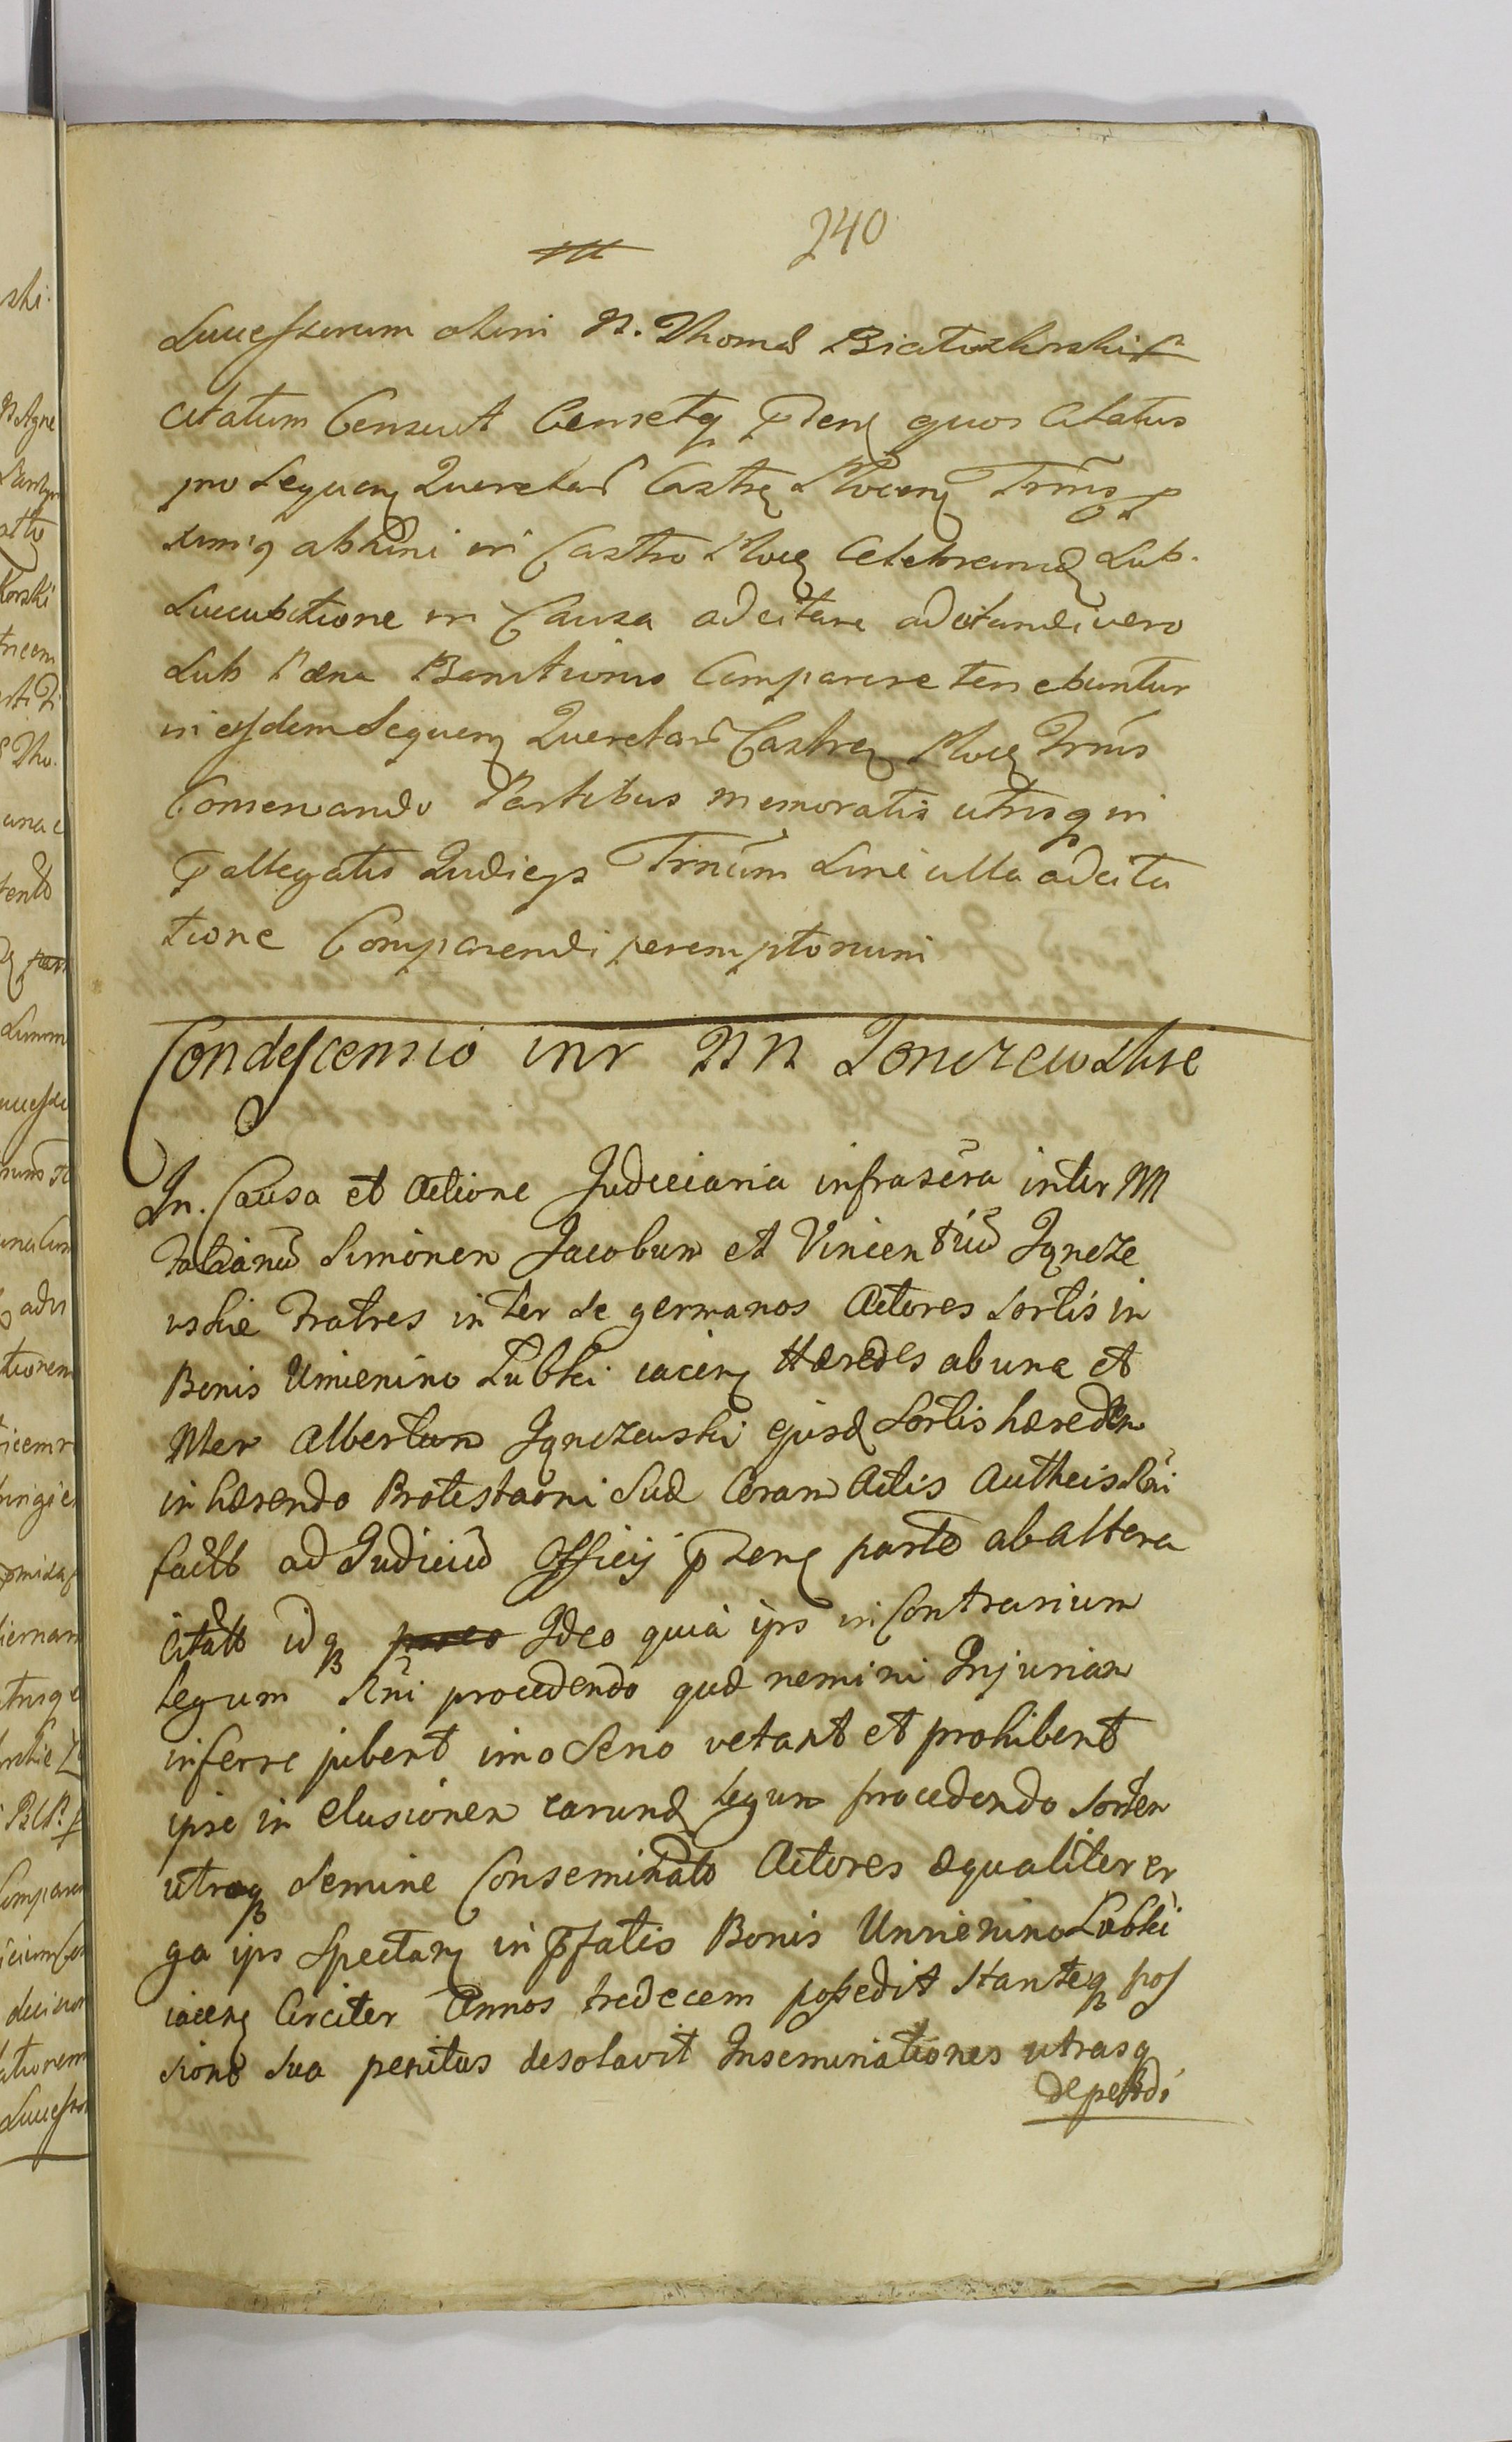 240
Successorum olim N. Thomæ Białoskorski
citatum Censuit Censetq pdens quos Citatus
pro Sequen Querelar Castren Plocen Trmis p
ximis abhinc in Castro Ploce Celebrand Sub
Succubitione in Causa adcitare adcitandi vero
Sub Pæna Bannitionis Comparere tenebuntur
in ijsdem Sequen Querelar Castren Ploce Trmis
Conservando Partibus memoratis utrisq in
pallegatis Judicys Trnum Sine ulla adcita
tione Comparendi peremptorium
Condescensio intr NN Jonczewskie
In Causa et Actione Judiciaria infrascra inter M
Fabianu Simonem Jacobum et Vincentiu Jączze
wskie Fratres inter se germanos Actores Sortis in
Bonis Umienino Łubki iacen Hæredes ab una et
Mer Albertum Jączczewski ejusd Sortis hæredem
inhærendo Protestaoni Suæ Coram Actis Autheis
factæ ad Judiciu Officij pzen parte ab altera
Citatt idq Ideo quia ips in Contrarium
Legum Rni procedendo quæ nemini Injuriam
inferre jubent imo Serio vetant et prohibent
ipse in elusionem earund legum procedendo Sortem
utroq Semine Conseminato Actores æqualiter er
ga ips Spectan in pfatis Bonis Umienino Łubki
iacen Circiter Annos tredecem possedit Stanteq pos
sione Sua penitus desolavit Inseminationes utrasq